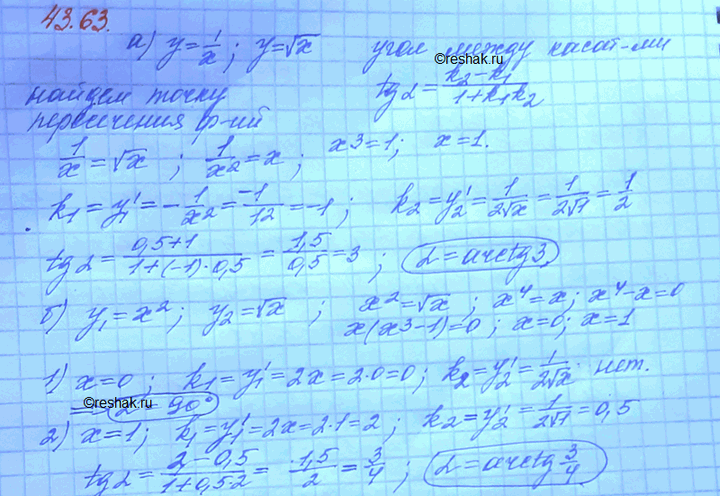 43.63.
а) y = 1/x ; y = √x угол между касат-ми
©reshak.ru
найдем точку tg α = (k₂ - k₁)/(1 + k₁k₂)
пересечения ф-ий
1/x = √x ; 1/x² = x ; x³ = 1; x = 1.
k₁ = y₁' = -1/x² = -1/1² = -1 ; k₂ = y₂' = 1/(2√x) = 1/(2√1) = 1/2
tg α = (0,5+1)/(1+(-1)·0,5) = 1,5/0,5 = 3 ; α = arctg 3
б) y₁ = x² ; y₂ = √x ; x² = √x ; x⁴ = x; x⁴ - x = 0
x(x³-1) = 0 ; x = 0; x = 1
1) x = 0 ; k₁ = y₁' = 2x = 2·0 = 0; k₂ = y₂' = 1/(2√x) нет.
©reshak.ru
α = 90°
2) x = 1; k₁ = y₁' = 2x = 2·1 = 2 ; k₂ = y₂' = 1/(2√1) = 0,5
tg α = (2 - 0,5)/(1 + 0,5·2) = 1,5/2 = 3/4 ; α = arctg 3/4
©reshak.ru